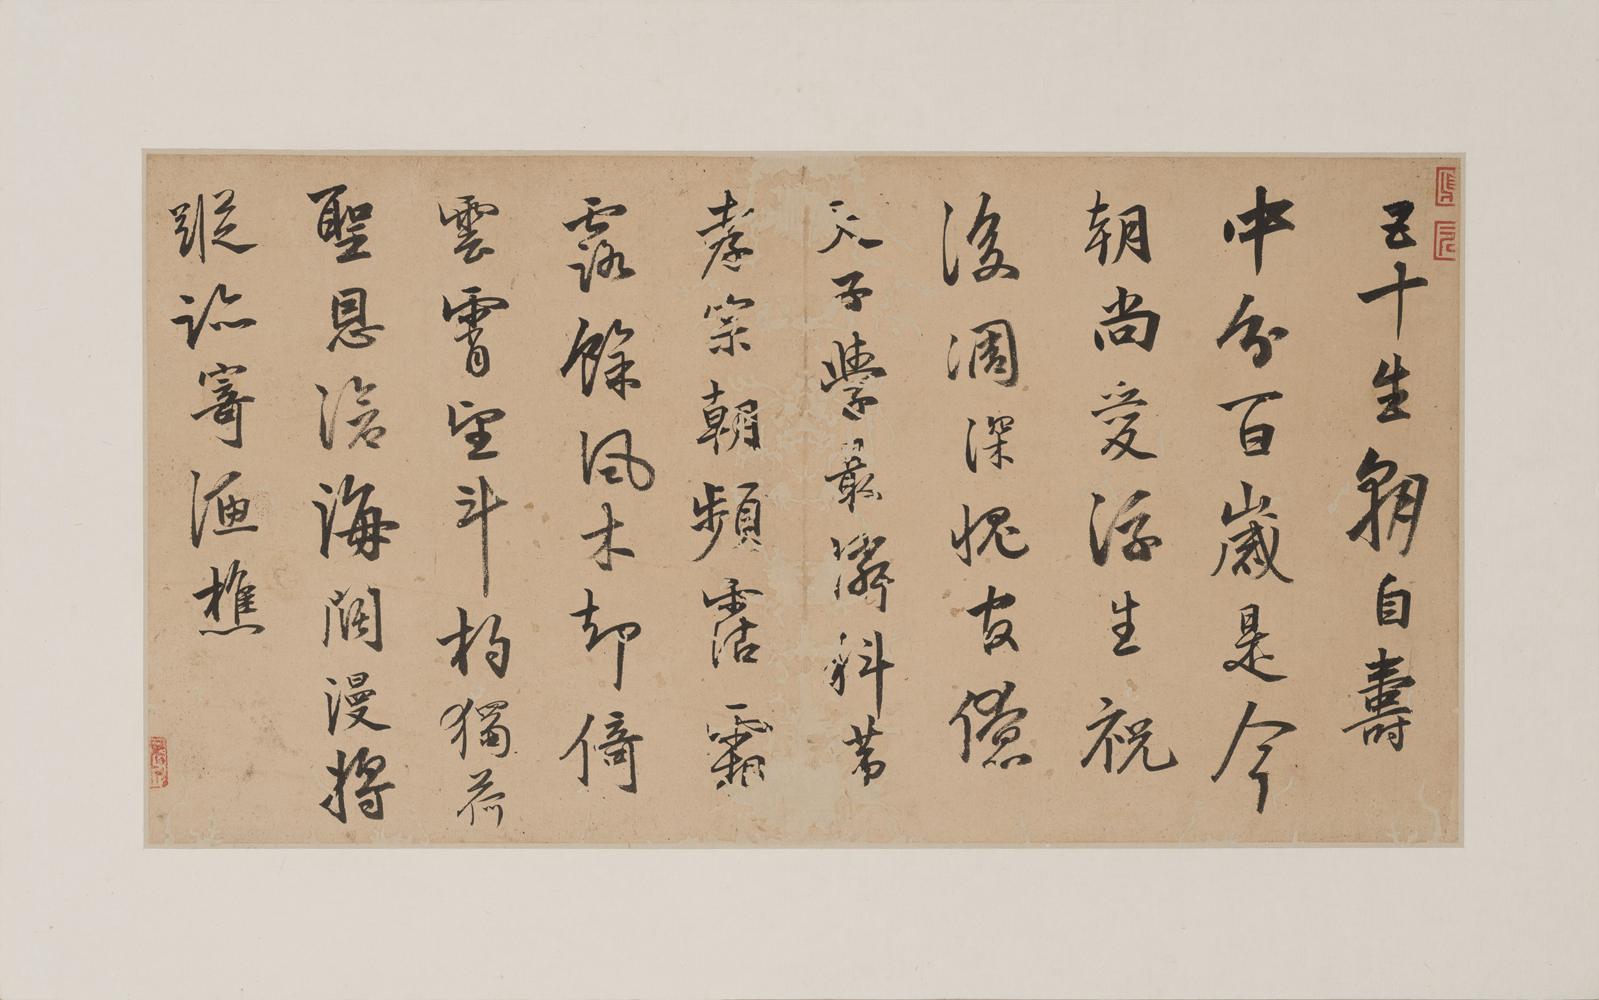 五十生朝自壽
中分百歲是今
朝尚愛浮生祝
後凋深愧官僚
天子學最憐科第
孝宗朝頻霑霜
露餘風木却倚
雲霄望斗杓獨荷
聖恩滄海闊漫將
蹤跡寄漁樵